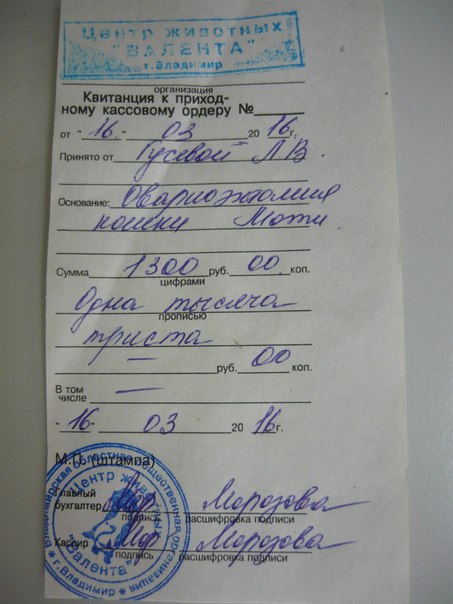 Центр животных
"ВАЛЕНТА"
г. Владимир
организация
Квитанция к приход-
ному кассовому ордеру №
от "16" 03 2016г.
Принято от Гусевой Л В
Основание: Овариоэктомия
кошки Моти
Сумма 1300 руб. 00 коп.
цифрами
Одна тысяча
прописью
триста
— руб. 00 коп.
В том
числе —
"16" 03 2016г.
М.П. (штампа)
Главный
бухгалтер Мор Морозова
подпись расшифровка подписи
Кассир Мор Морозова
подпись расшифровка подписи
Владимирская областная общественная организация
Центр животных
"Валента"
* г. Владимир *